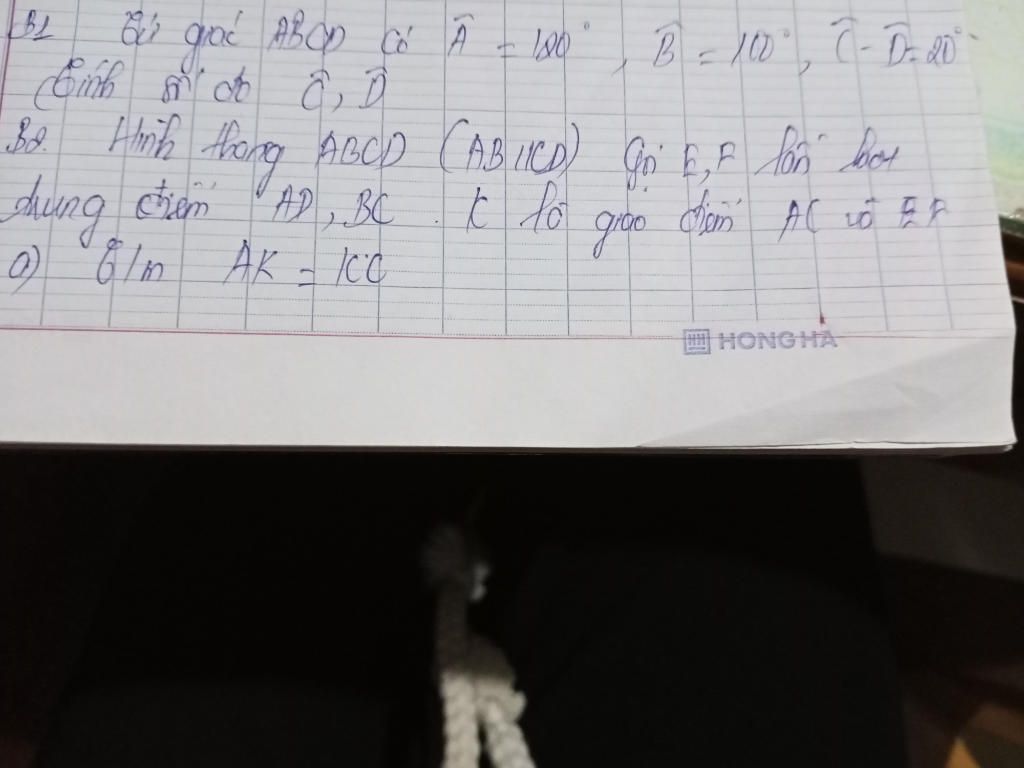 B1 Tứ giác ABCD có Â = 120°, B̂ = 100°, Ĉ - D̂ = 20°
Tính số đo Ĉ, D̂
B2. Hình thang ABCD (AB//CD) Gọi E, F lần lượt
trung điểm AD, BC. K là giao điểm AC và EF
a) C/m AK = KC
HONG HA